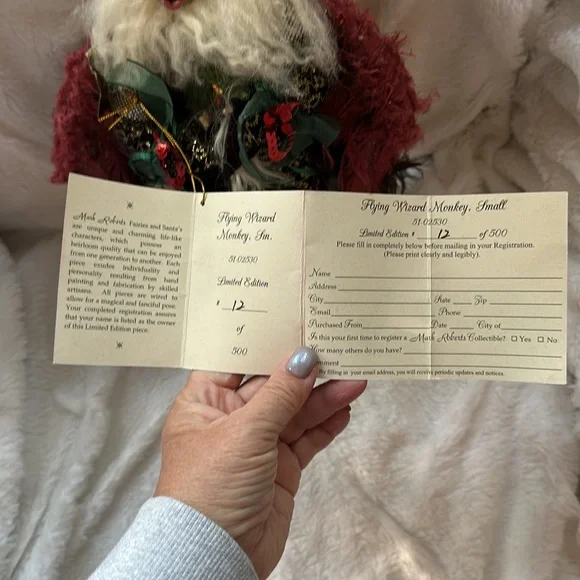 Mark Roberts Fairies and Santa's
are unique and charming life-like
characters, which possess an
heirloom quality that can be enjoyed
from one generation to another. Each
piece exudes individuality and
personality resulting from hand
painting and fabrication by skilled
artisans. All pieces are wired to
allow for a magical and fanciful pose.
Your completed registration assures
that your name is listed as the owner
of this Limited Edition piece.
Flying Wizard
Monkey, Sm.
51-02530
Limited Edition
# 12
of
500
Flying Wizard Monkey, Small
51-02530
Limited Edition # 12 of 500
Please fill in completely below before mailing in your Registration.
(Please print clearly and legibly).
Name
Address
City State Zip
Email Phone
Purchased From Date City of
Is this your first time to register a Mark Roberts Collectible? Yes No
How many others do you have?
By filling in your email address, you will receive periodic updates and notices.